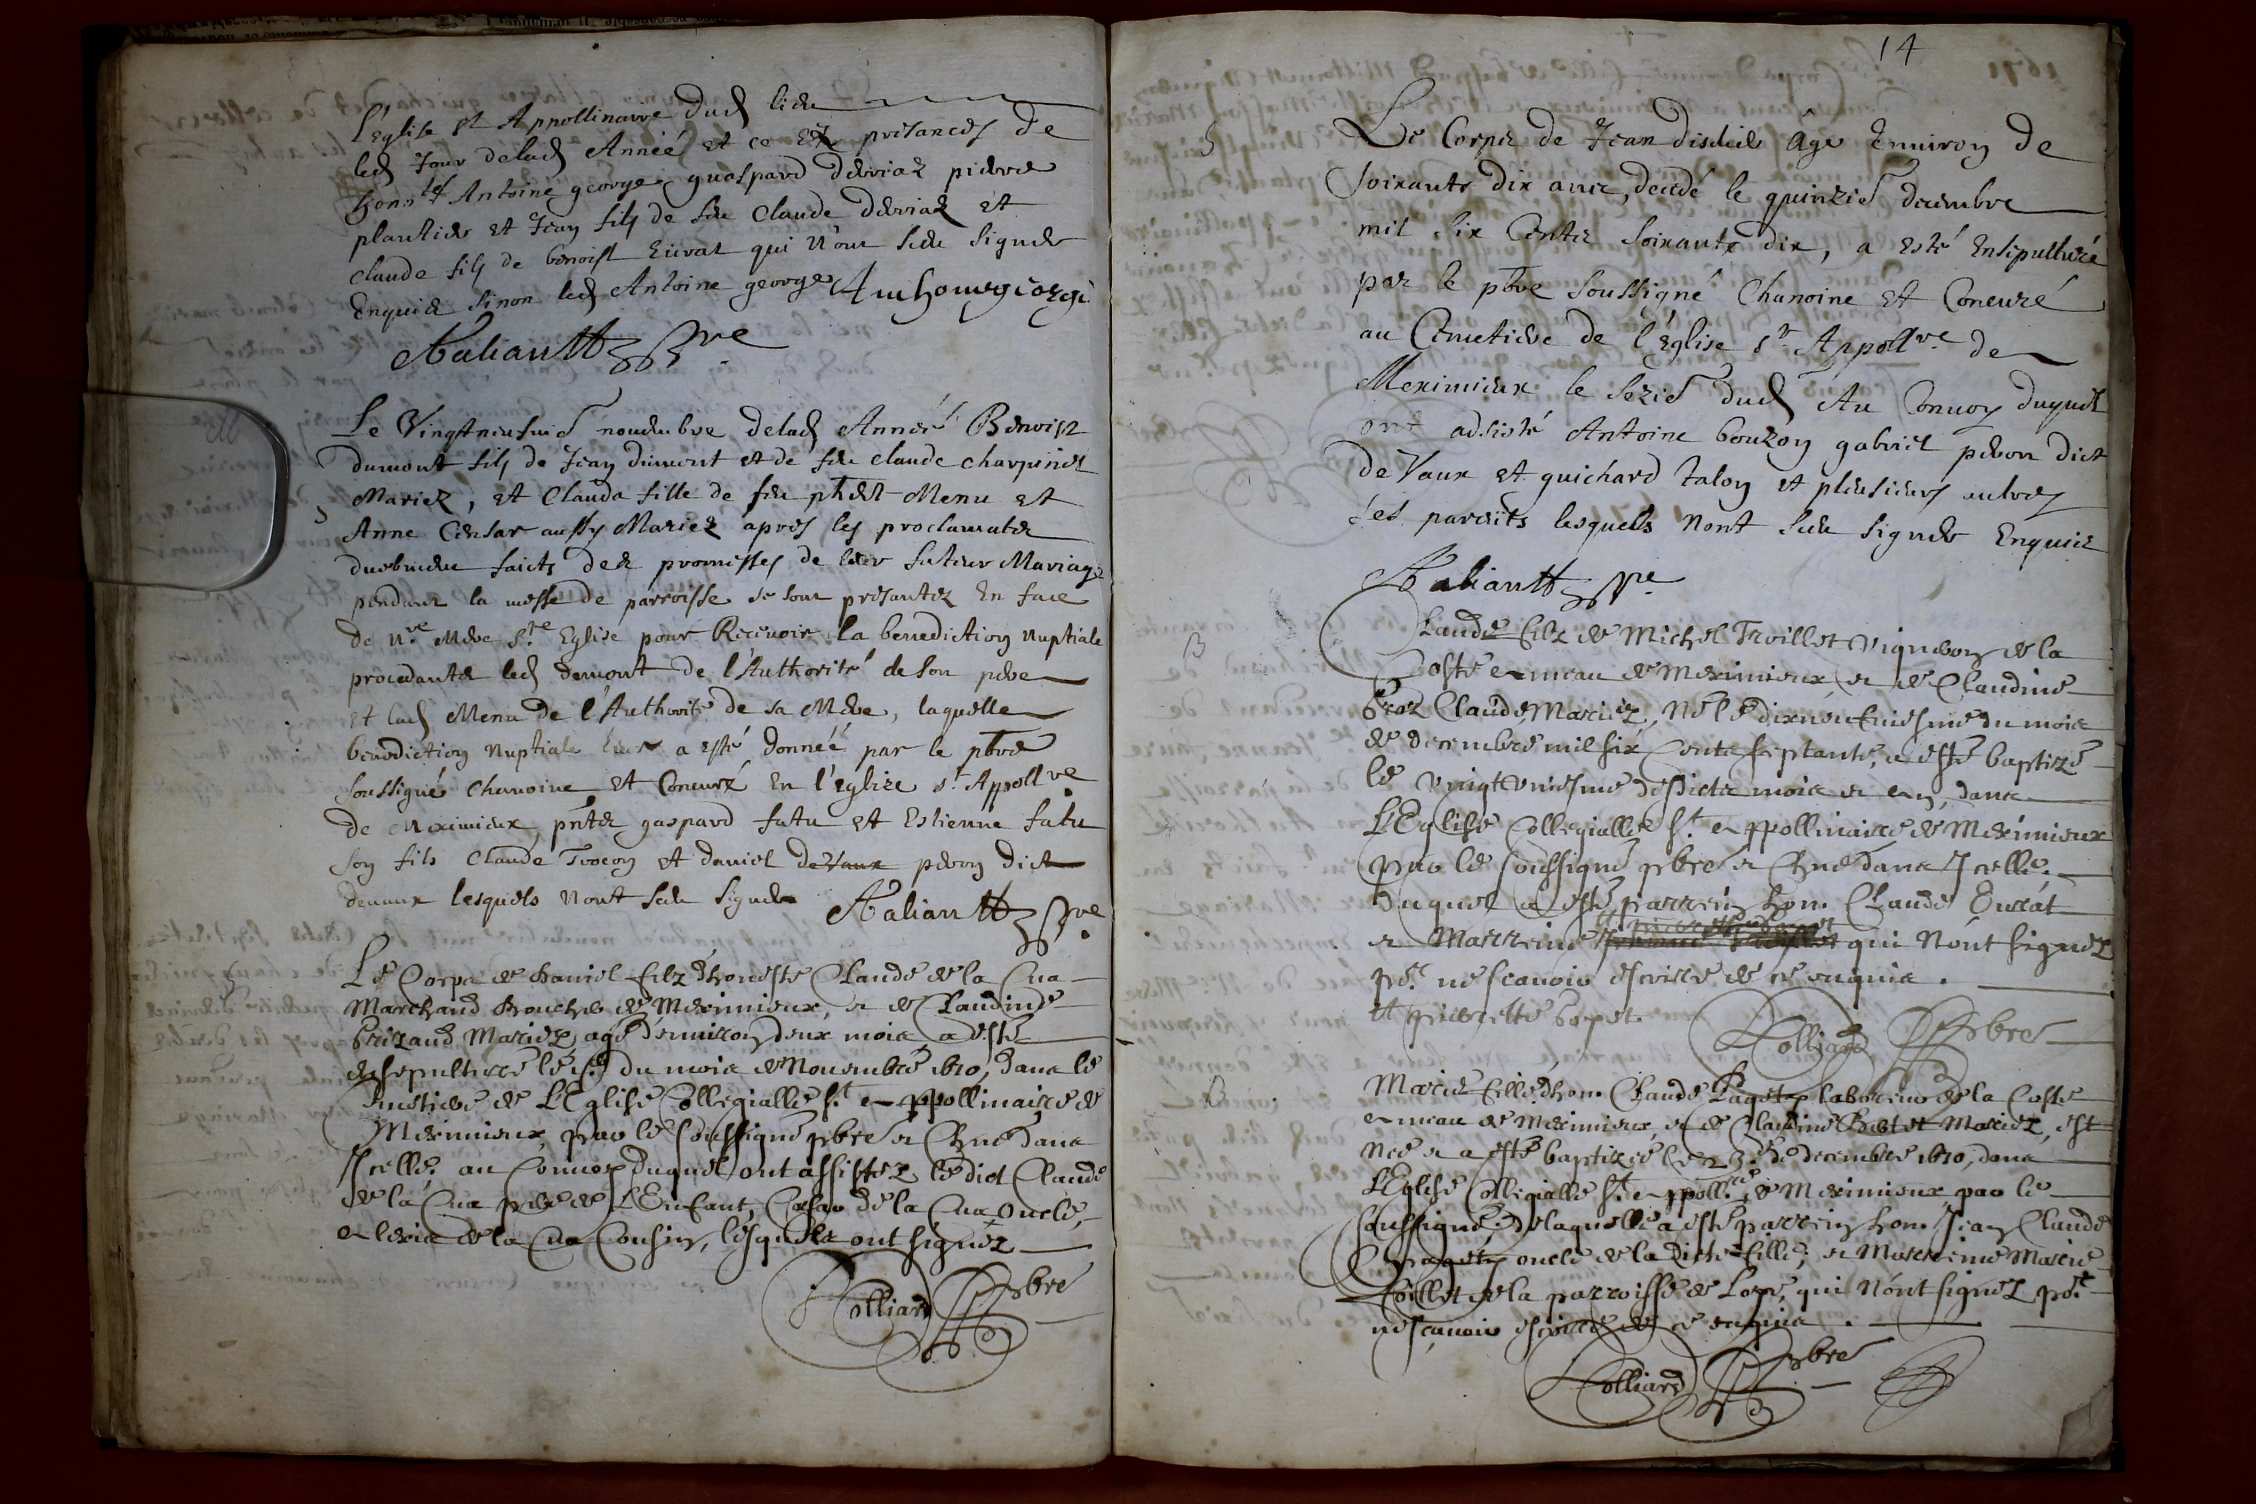 l'Eglise St Appollinaire dud lieu
led Jour delad Anneé et ce Ez presances de
honn.tes Antoine george guaspard derriaz pierre
plantier et Jean fils de feu Claude derriaz et
claude fils de benoist Eürat qui n'ont sceu signer
Enquis sinon led Antoine george Anthoine george
ptre
Le Vingtneufuie novembre delad Anneé Benoist
dumont fils de Jean dumont et de feu claude charpinet
Mariez, et Clauda fille de feu phẽt Menu et
Anne Censar aussy Mariez apres les proclamatõ
duebment faicts dez promesses de leur futeur Mariage
pendant la messe de parroisse se sont presantez En face
de n.re Mere S.te Eglise pour Recevoir la benediction nuptiale
procedants led dumont de l'Authorité de son pere
et lad Menu de l'Authorite de sa Mere, laquelle
benediction nuptiale leur a esté donneé par le pbre
soussigné chanoine et Concuré En l'eglize St Appoll.re
de Meximieux, pntz gaspard fatu et Estienne fatu
son fils Claude Trocon et daniel devaux peron dict
devaux lesquels nont sceu signer
ptre
Le Corps de Daniel filz d'honeste Claude de la Cua
Marchand Boucher de Meximieux, et de Claudine
Brizaud Mariez, agé denuiron deux mois a esté
ensepulturé le du mois de Nouembre 1670, dans le
Cimetiere de L'Eglise Collegialle S.t Appollinaire de
Meximieux par le soussigné pbre et Curé dans
Jcelle. au Conuoy duquel ont assistez le dict Claude
de la Cua pere de L'Enfant, Cesar de la Cua Oncle,
Alexis de la Cua Cousin, lesquels ont signez
Colliard pbre
14
S
Le Corps de Jean disdier âge Enuiron de
soixante dix ans, decedé le quinzie decembre
mil six Cents soixante dix, a esté Ensepulturé
par le pbre soussigné Chanoine et Concuré
au Cimetiere de l'Eglise St Appoll.re de
Meximieux le sezie dud Au Convoy duquel
ont adsisté Antoine bouzon gabriel peron dict
de Vaux et guichard talon et plusieurs autres
ses parents lesquels nont sceu signer Enquis
ptre
B
Claude filz de Michel Troillet Vigneron de la
Coste Anneau de Meximieux et de Claudine
Groz Claude Mariez, né le dixneufuiesme du mois
de decembre mil six Cents septante, a esté baptizé
le vingtvniesme desdicts mois et an, dans
L'Eglise Collegialle S.t Appollinaire de Meximieux
par le soussigné pbre et Curé dans Jcelle.
Duquel a esté parrein hon. Claude Eurat
et Marreine qui Nont signez
pr. ne scauoir escrire de ce enquis.
et pierrette
Colliard pbre
B
Marie fille d'hon. Claude Paget laboureur de la Coste
Anneau de Meximieux, et de Claudine Bertet Mariez, est
neé et a esté baptizeé le 23.e de decembre 1670, dans
L'Eglise Collegialle S.t Appoll.re de Meximieux par le
soussigné. De laquelle a esté parrein hon. Jean Claude
Paget oncle de la dicte fille; et Marreine Marie
de la parroisse de Loye, qui Nont signez pr.
ne scauoir escrire de ce enquis.
Colliard pbre